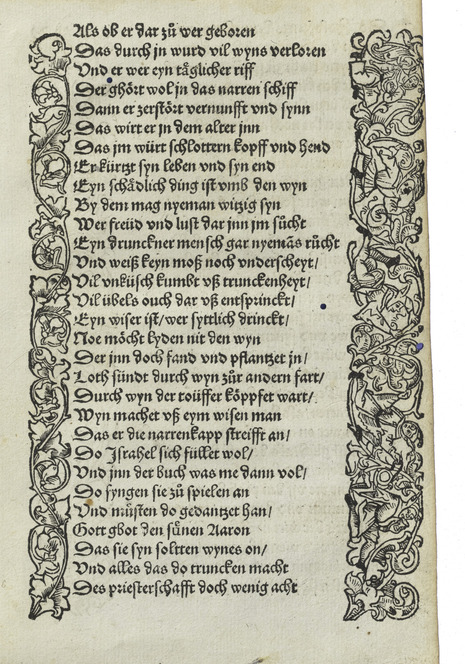 Als ob er dar zuͦ wer geboren
Das durch jn wurd vil wyns verloren
Vnd er wer eyn taͤglicher riff
Der ghoͤrt wol jn das narren schiff
Dann er zerstoͤrt vernunfft vnd synn
Das wirt er jn dem alter jnn
Das jm wuͤrt schlottern kopff vnd hend
Er kuͤrtzt syn leben vnd syn end
Eyn schaͤdlich ding ist vmb den wyn
By dem mag nyeman witzig syn
Wer freuͤd vnd lust dar jnn jm suͤcht
Eyn drunckner mensch gar nyemās ruͤcht
Vnd weiß keyn moß noch vnderscheyt/
Vil vnkuͤsch kumbt vß trunckenheyt/
Vil uͤbels ouch dar vß entsprinckt/
Eyn wiser ist/wer syttlich drinckt/
Noe moͤcht lyden nit den wyn
Der jnn doch fand vnd pflantzet jn/
Loth suͤndt durch wyn zuͦr andern fart/
Durch wyn der toͤuffer koͤppfet wart/
Wyn machet vß eym wisen man
Das er die narrenkapp streifft an/
Do Jsrahel sich fuͤllet wol/
Vnd jnn der buch was me dann vol/
Do fyngen sie zuͦ spielen an
Vnd muͤsten do gedantzet han/
Gott gbot den suͤnen Aaron
Das sie syn soltten wynes on/
Vnd alles das do truncken macht
Des priesterschafft doch wenig acht